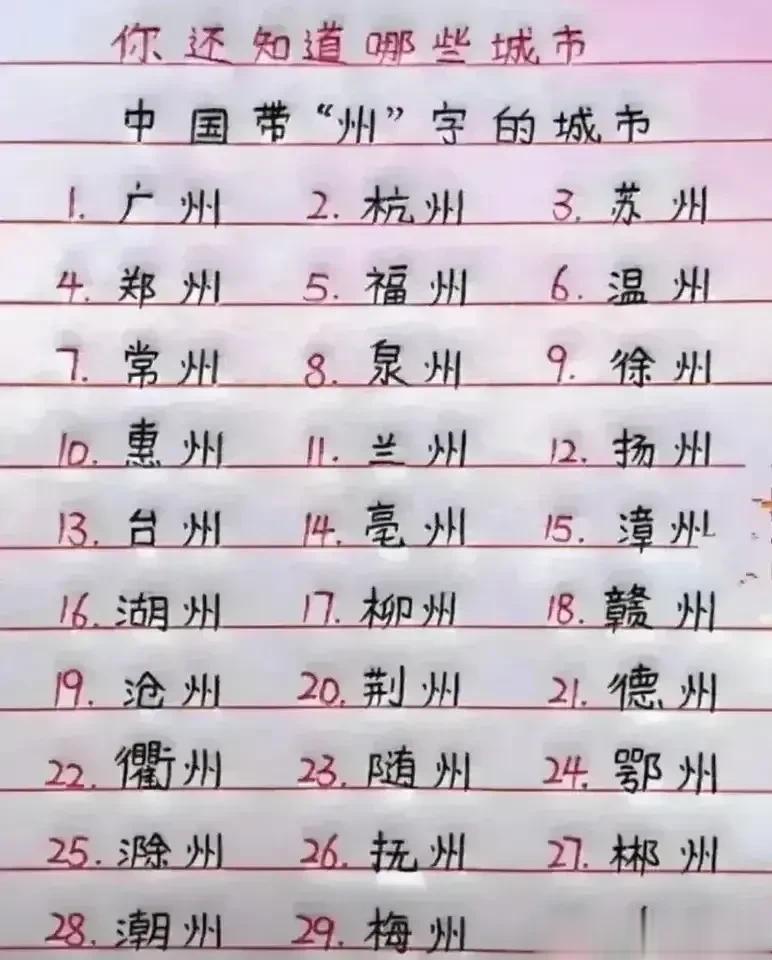 你还知道哪些城市
中国带“州”字的城市
1. 广州 2. 杭州 3. 苏州
4. 郑州 5. 福州 6. 温州
7. 常州 8. 泉州 9. 徐州
10. 惠州 11. 兰州 12. 扬州
13. 台州 14. 亳州 15. 漳州
16. 湖州 17. 柳州 18. 赣州
19. 沧州 20. 荆州 21. 德州
22. 衢州 23. 随州 24. 鄂州
25. 滁州 26. 抚州 27. 郴州
28. 潮州 29. 梅州